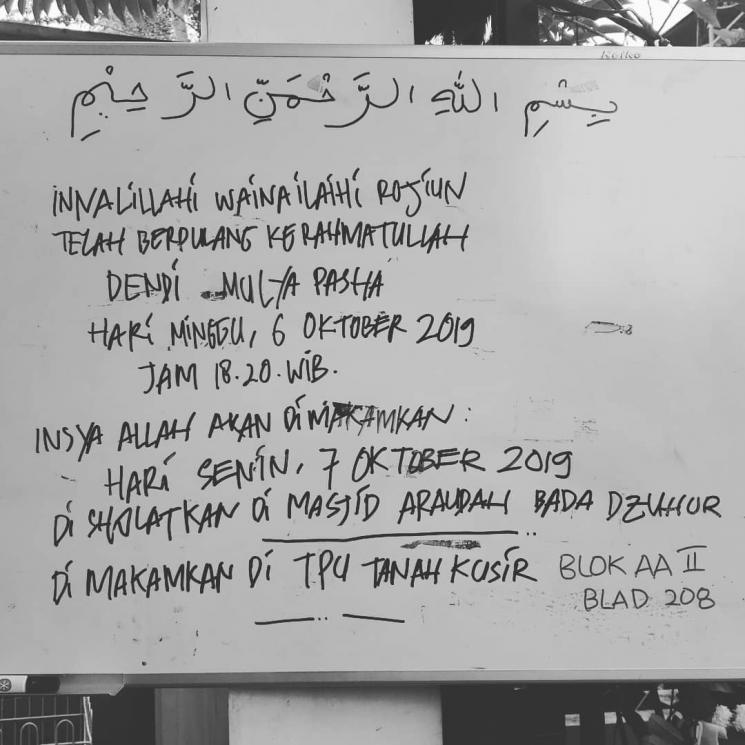 Keiko
بِسْمِ اللهِ الرَّحْمَنِ الرَّحِيْمِ
INNALILLAHI WAINAILAIHI ROJIUN
TELAH BERPULANG KERAHMATULLAH
DENDI MULYA PASHA
HARI MINGGU, 6 OKTOBER 2019
JAM 18.20.WIB.
INSYA ALLAH AKAN DIMAKAMKAN:
HARI SENIN, 7 OKTOBER 2019
DI SHOLATKAN DI MASJID ARAUDAH BADA DZUHUR
DI MAKAMKAN DI TPU TANAH KUSIR BLOK AA II
BLAD 208